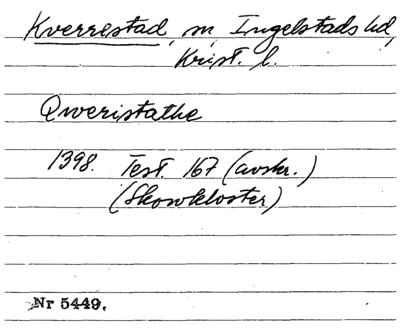 Kverrestad, sn, Ingelstads hd,
Krist. l.
Qweristathe
1398. Test. 167 (avskr.)
(Skowkloster)
Nr 5449.